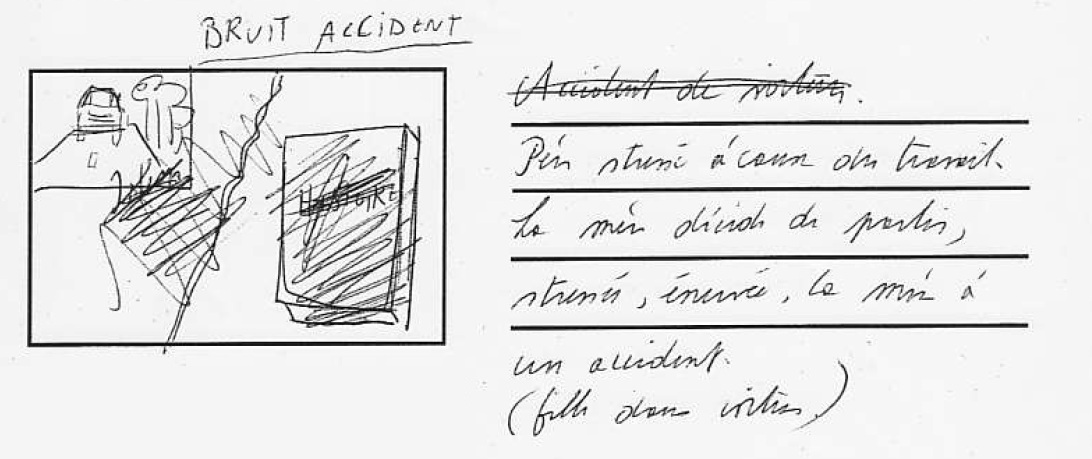 BRUIT ACCIDENT
HISTOIRE
Accident de voiture.
Père stressé à cause du travail.
La mère décide de partir,
stressée, énervée, la mère à
un accident.
(fille dans voiture)